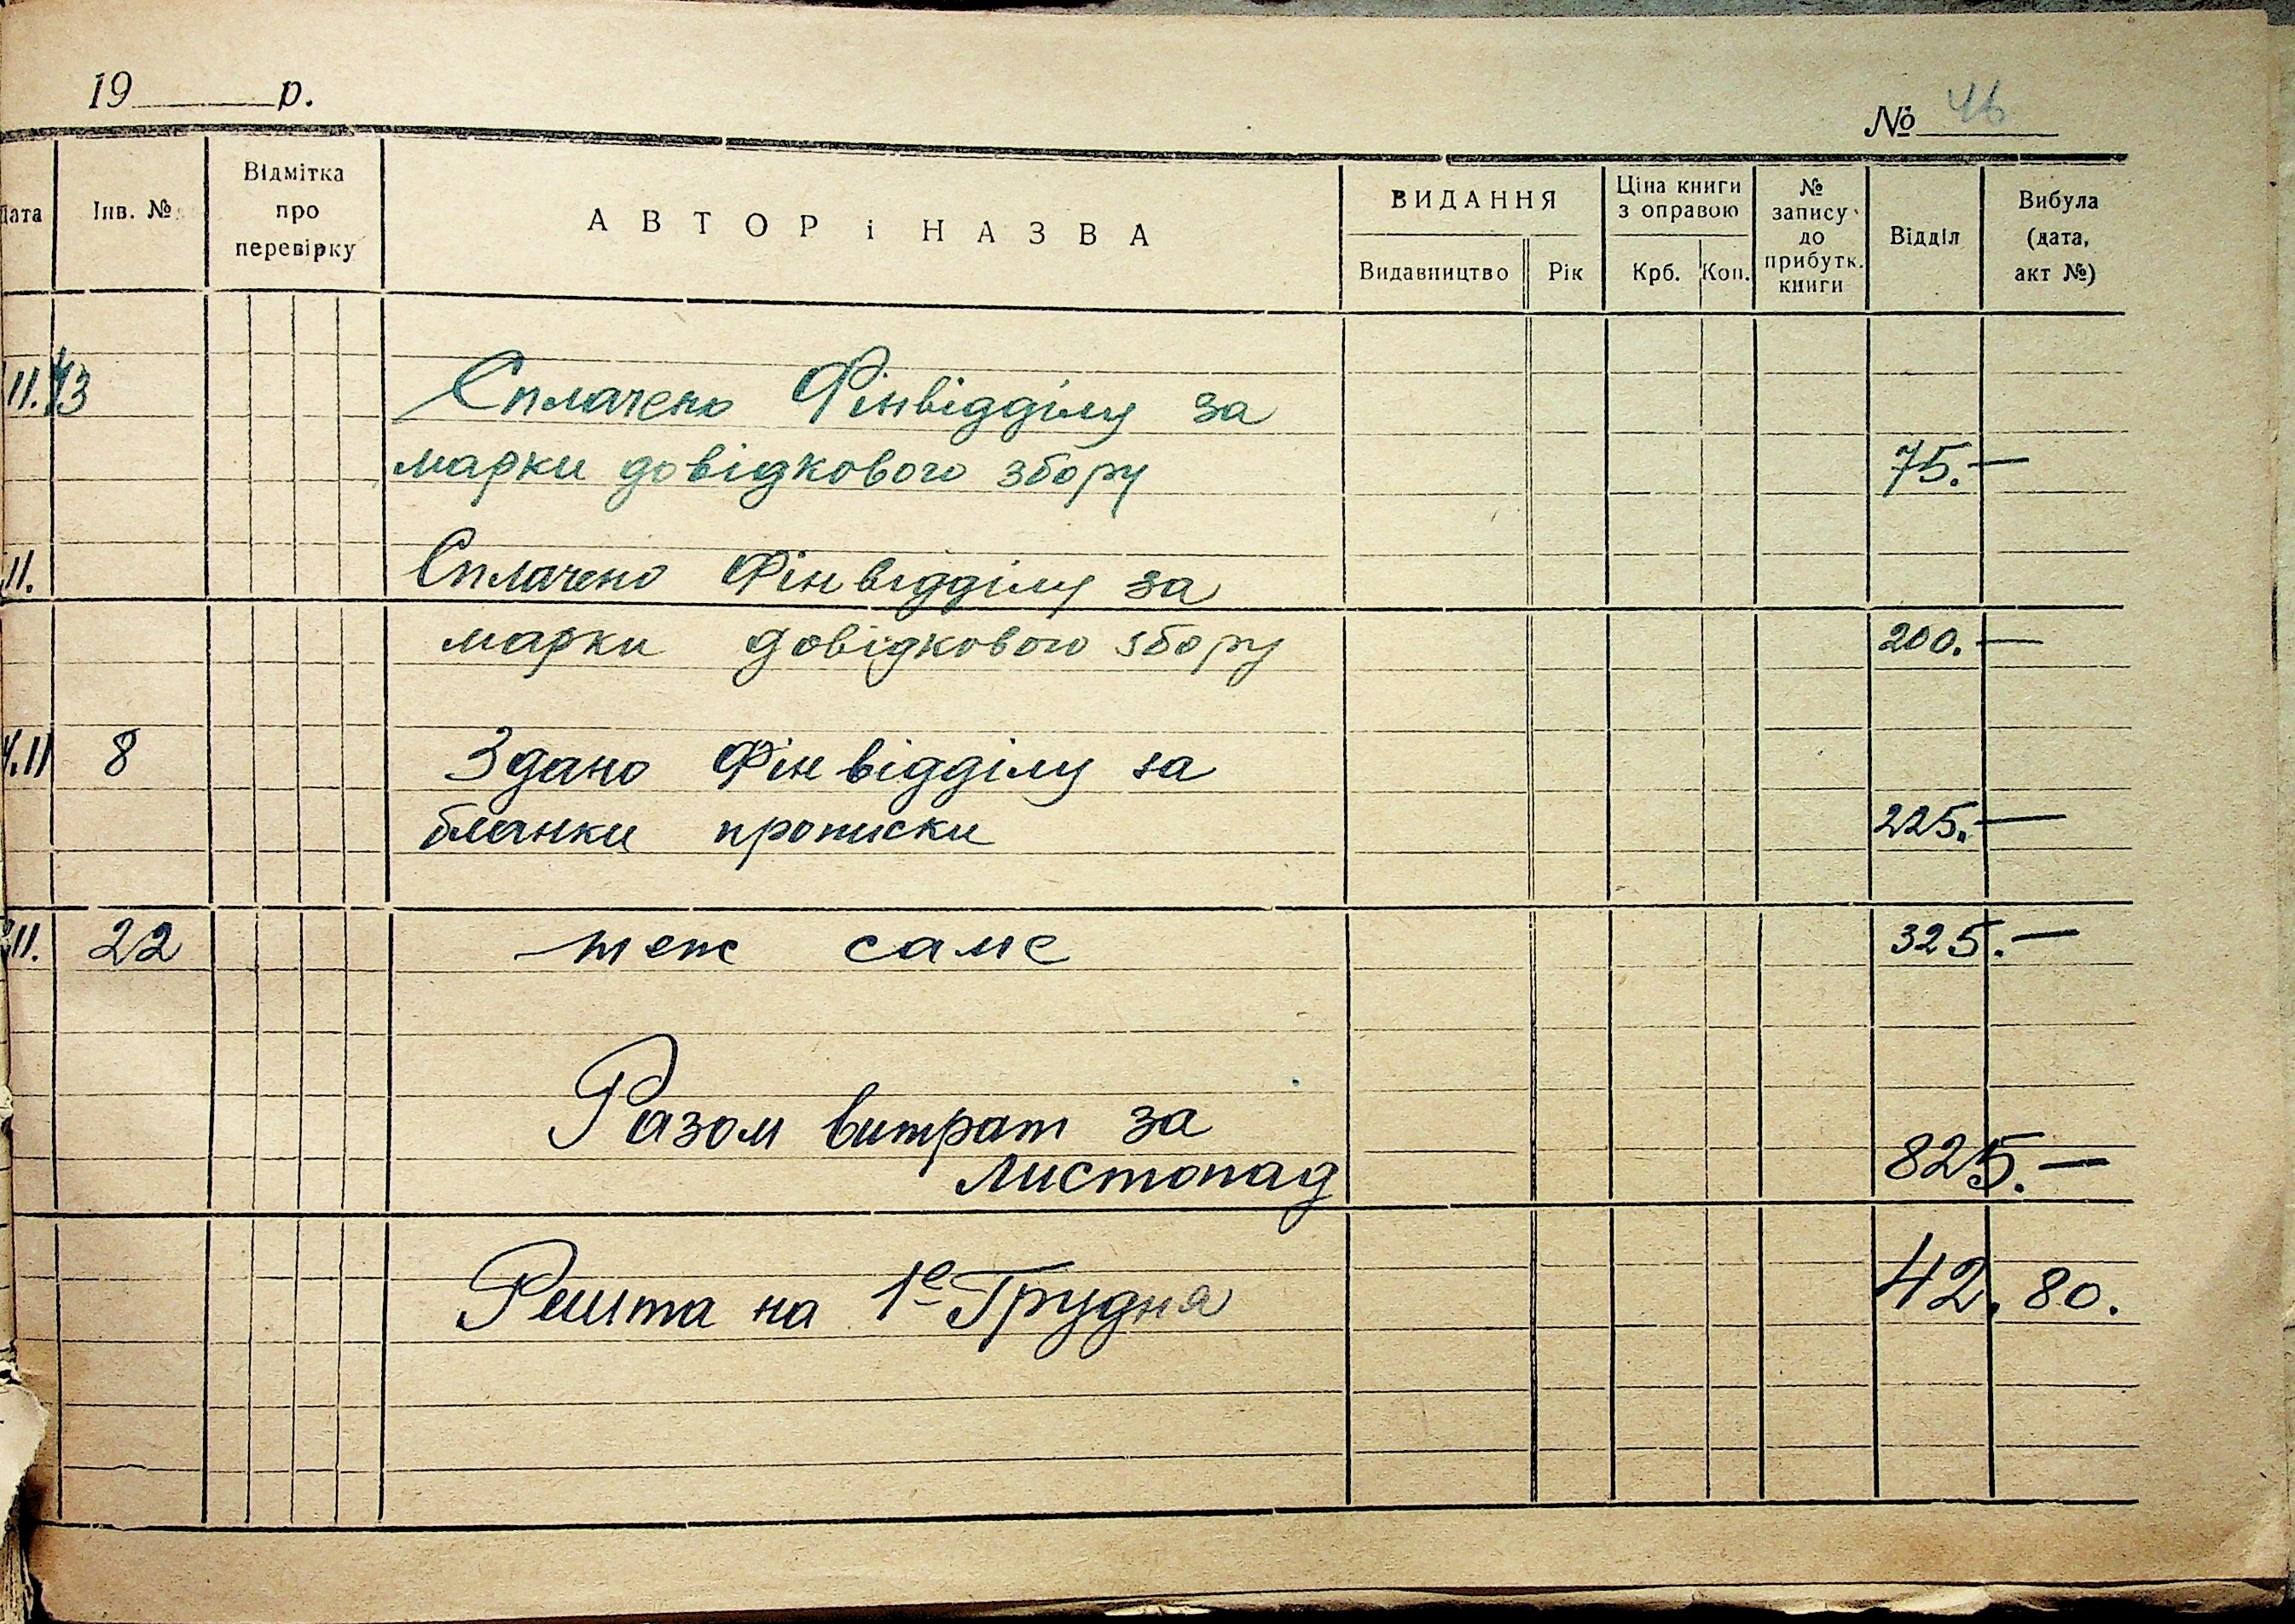 19 р.
№ 46
Дата Інв. № Відмітка про перевірку АВТОР і НАЗВА ВИДАННЯ Видавництво Рік Ціна книги з оправою Крб. Коп. № запису до прибутк. книги Відділ Вибула (дата, акт №)
11.43 Сплачено Фінвідділу за
марки довідкового збору 75.—
11. Сплачено Фінвідділу за
марки довідкового збору 200.—
11 8 Здано Фінвідділу за
бланки прописки 225.—
11. 22 теж саме 325.—
Разом витрат за
листопад 825.—
Решта на 1е Грудня 42.80.